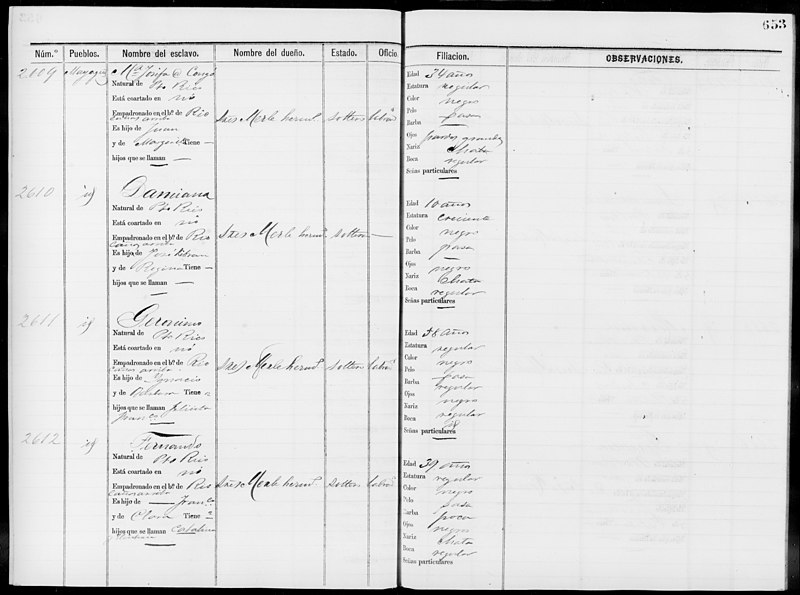 653
Núm.º Pueblos. Nombre del esclavo. Nombre del dueño. Estado. Oficio Filiacion. OBSERVACIONES.
2609
Natural de Pto Rico
Está coartado en no
Empadronado en el b.º de Rio
Es hijo de Juan
y de Margarita Tiene —
hijos que se llaman —
Sres Merle herm.s soltera labra
Edad 34 años
Estatura regular
Color negro
Pelo pasa
Barba —
Ojos pardos grandes
Nariz Chata
Boca regular
Señas particulares —
2610 id
Damiana
Natural de Pto Rico
Está coartado en no
Empadronado en el b.º de Rio
Es hija de
y de Regina Tiene —
hijos que se llaman —
Sres Merle herm.s soltera —
Edad 10 años
Estatura creciente
Color negro
Pelo pasa
Barba —
Ojos negro
Nariz Chata
Boca regular
Señas particulares —
2611 id
Geronimo
Natural de Pto Rico
Está coartado en no
Empadronado en el b.º de Rio
Es hijo de Ygnacio
y de Barbara Tiene
hijos que se llaman
Sres Merle herm.s soltero labra
Edad 38 años
Estatura regular
Color negro
Pelo pasa
Barba regular
Ojos negro
Nariz regular
Boca id
Señas particulares —
2612 id
Fernando
Natural de Pto Rico
Está coartado en no
Empadronado en el b.º de Rio
Es hijo de
y de Clara Tiene
hijos que se llaman Catalina
Sres Merle herm.s soltero labra
Edad 39 años
Estatura regular
Color negro
Pelo pasa
Barba poca
Ojos negro
Nariz chata
Boca regular
Señas particulares